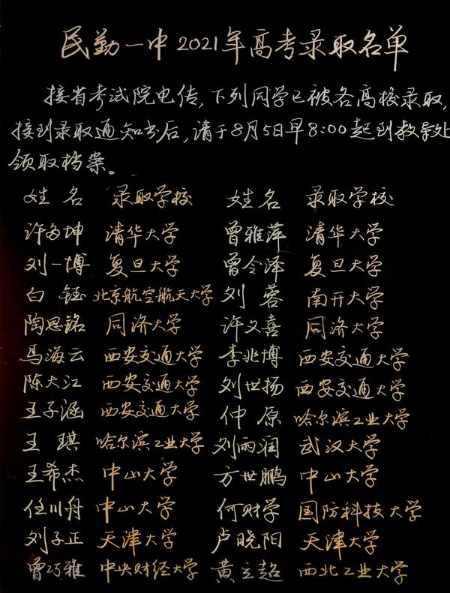 民勤一中2021年高考录取名单
接省考试院电传,下列同学已被各高校录取,
接到录取通知书后,请于8月5日早8:00起到教导处
领取档案。
姓名 录取学校 姓名 录取学校
许多坤 清华大学 曾雅萍 清华大学
刘一博 复旦大学 曾令泽 复旦大学
白钰 北京航空航天大学 刘蓉 南开大学
陶思铭 同济大学 许文喜 同济大学
马海云 西安交通大学 李兆博 西安交通大学
陈大江 西安交通大学 刘世扬 西安交通大学
王子涵 西安交通大学 仲原 哈尔滨工业大学
王琪 哈尔滨工业大学 刘雨润 武汉大学
王希杰 中山大学 方世鹏 中山大学
任川舟 中山大学 何财学 国防科技大学
刘子正 天津大学 卢晓阳 天津大学
曾巧雅 中央财经大学 黄立超 西北工业大学